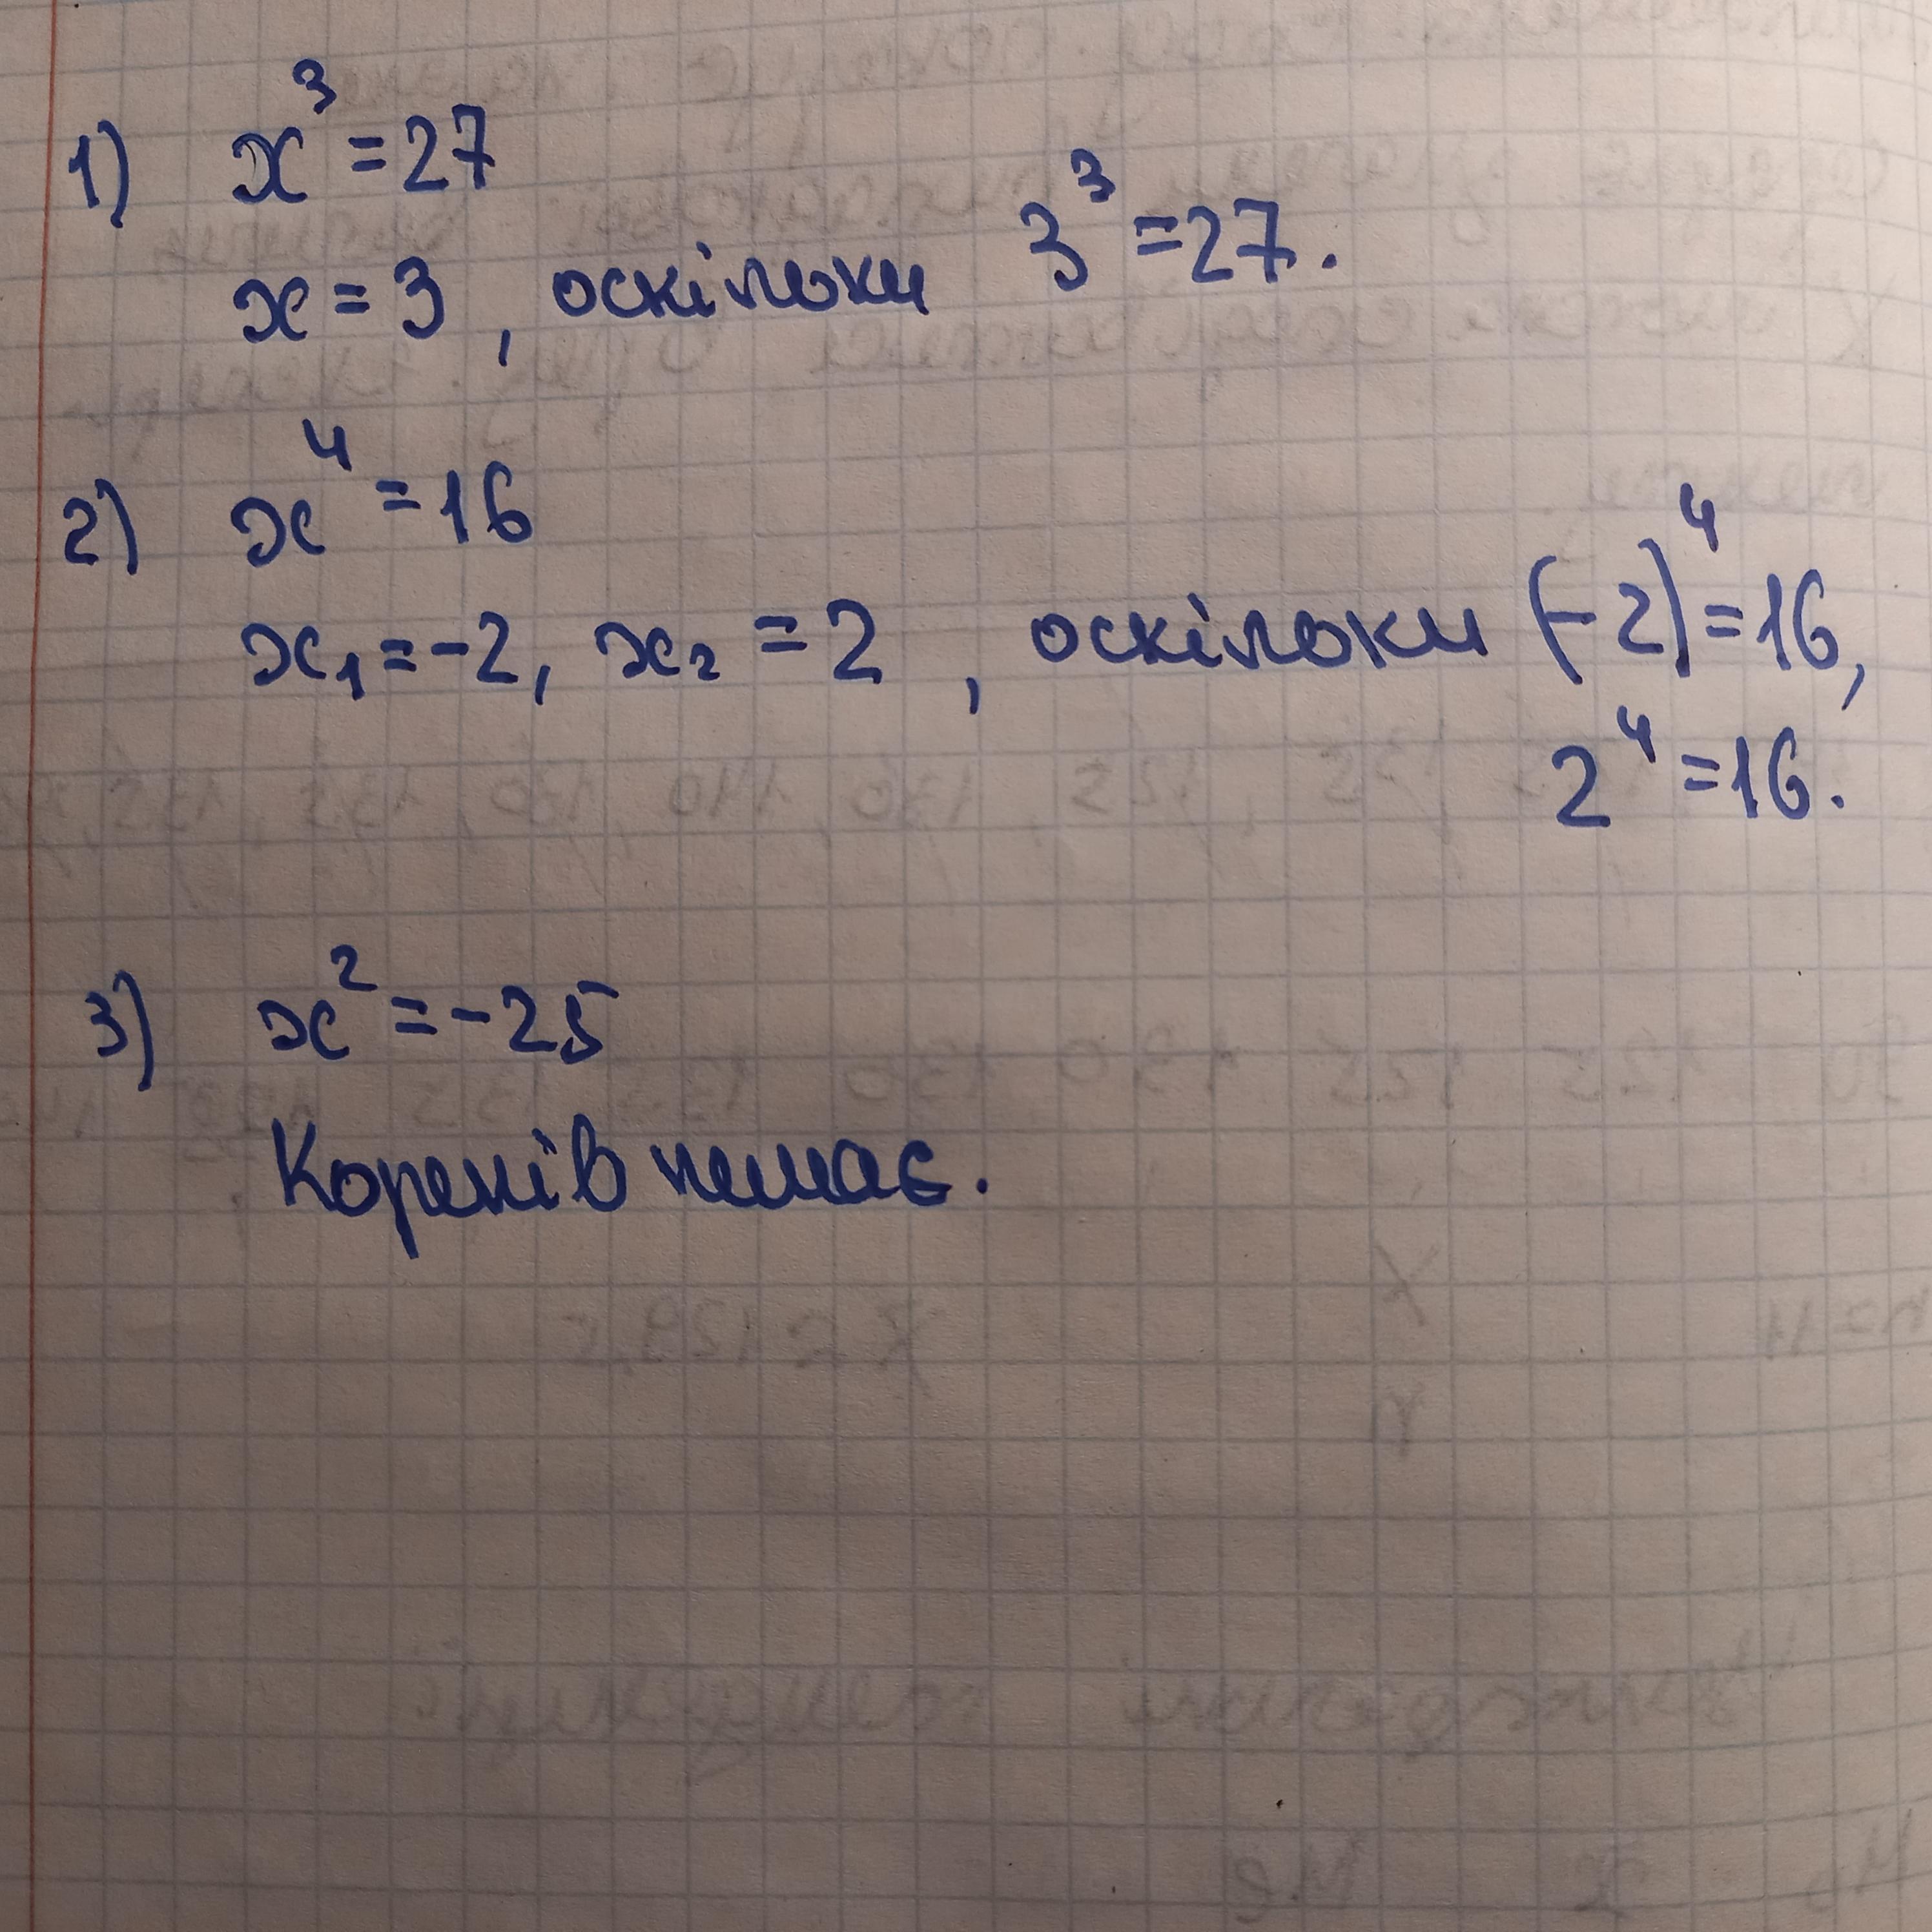 1) x³ = 27
x = 3, оскільки 3³ = 27.
2) x⁴ = 16
x₁ = -2, x₂ = 2, оскільки (-2)⁴ = 16,
2⁴ = 16.
3) x² = -25
Коренів немає.